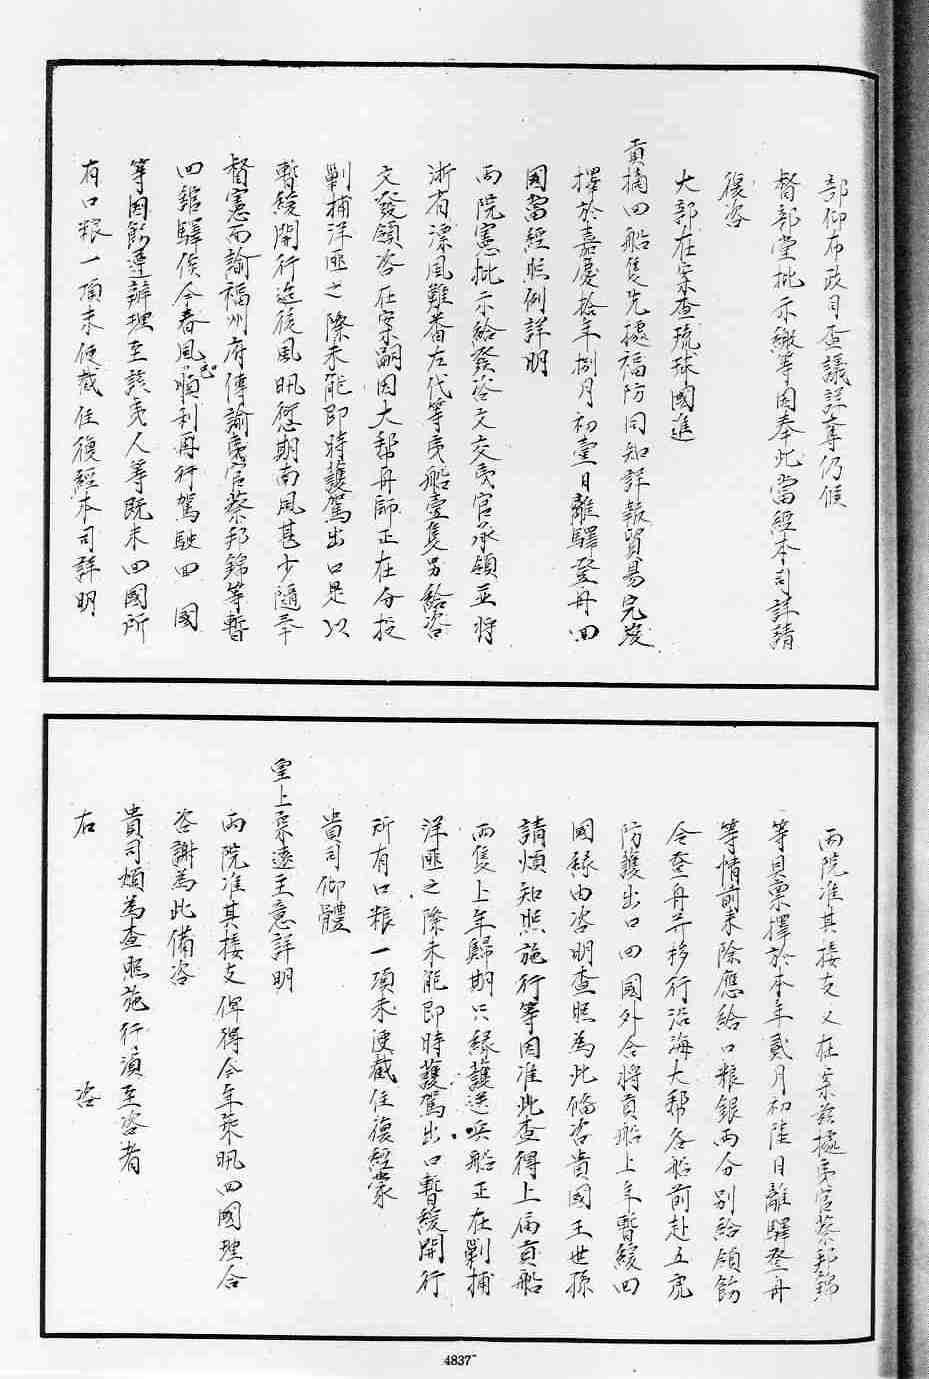 部仰布政司查議詳奪仍候
督部堂批示繳等因奉此當經本司詳請
復咨
大部在案查琉球國進
貢摘回船隻先據福防同知詳報貿易完竣
擇於嘉慶拾年捌月初壹日離驛登舟回
國當經照例詳明
兩院憲批示給發咨文交夷官承領並將
浙省漂風難番左代等夷船壹隻另給咨
文發領咨在案嗣因大幫舟師正在分投
剿捕洋匪之際未能即時護駕出口是以
暫緩開行迨後風帆愆期南風甚少隨奉
督憲面諭福州府傳諭夷官蔡邦錦等暫
回館驛俟今春風色順利再行駕駛回國
等因飭遵辦理至該夷人等既未回國所
有口粮一項未便截住復經本司詳明
兩院准其接支又在案茲據夷官蔡邦錦
等具稟擇於本年貳月初陸日離驛登舟
等情前來除應給口粮銀兩分別給領飭
令登舟並移行沿海大幫各船前赴五虎
防護出口回國外合將貢船上年暫緩回
國緣由咨明查照為此備咨貴國王世孫
請煩知照施行等因准此查得上届貢船
兩隻上年歸期只緣護送兵船正在剿捕
洋匪之際未能即時護駕出口暫緩開行
所有口粮一項未便截住復經蒙
貴司仰體
皇上柔遠至意詳明
兩院准其接支俾得今年乘帆回國理合
咨謝為此備咨
貴司煩為查照施行須至咨者
右 咨
4837